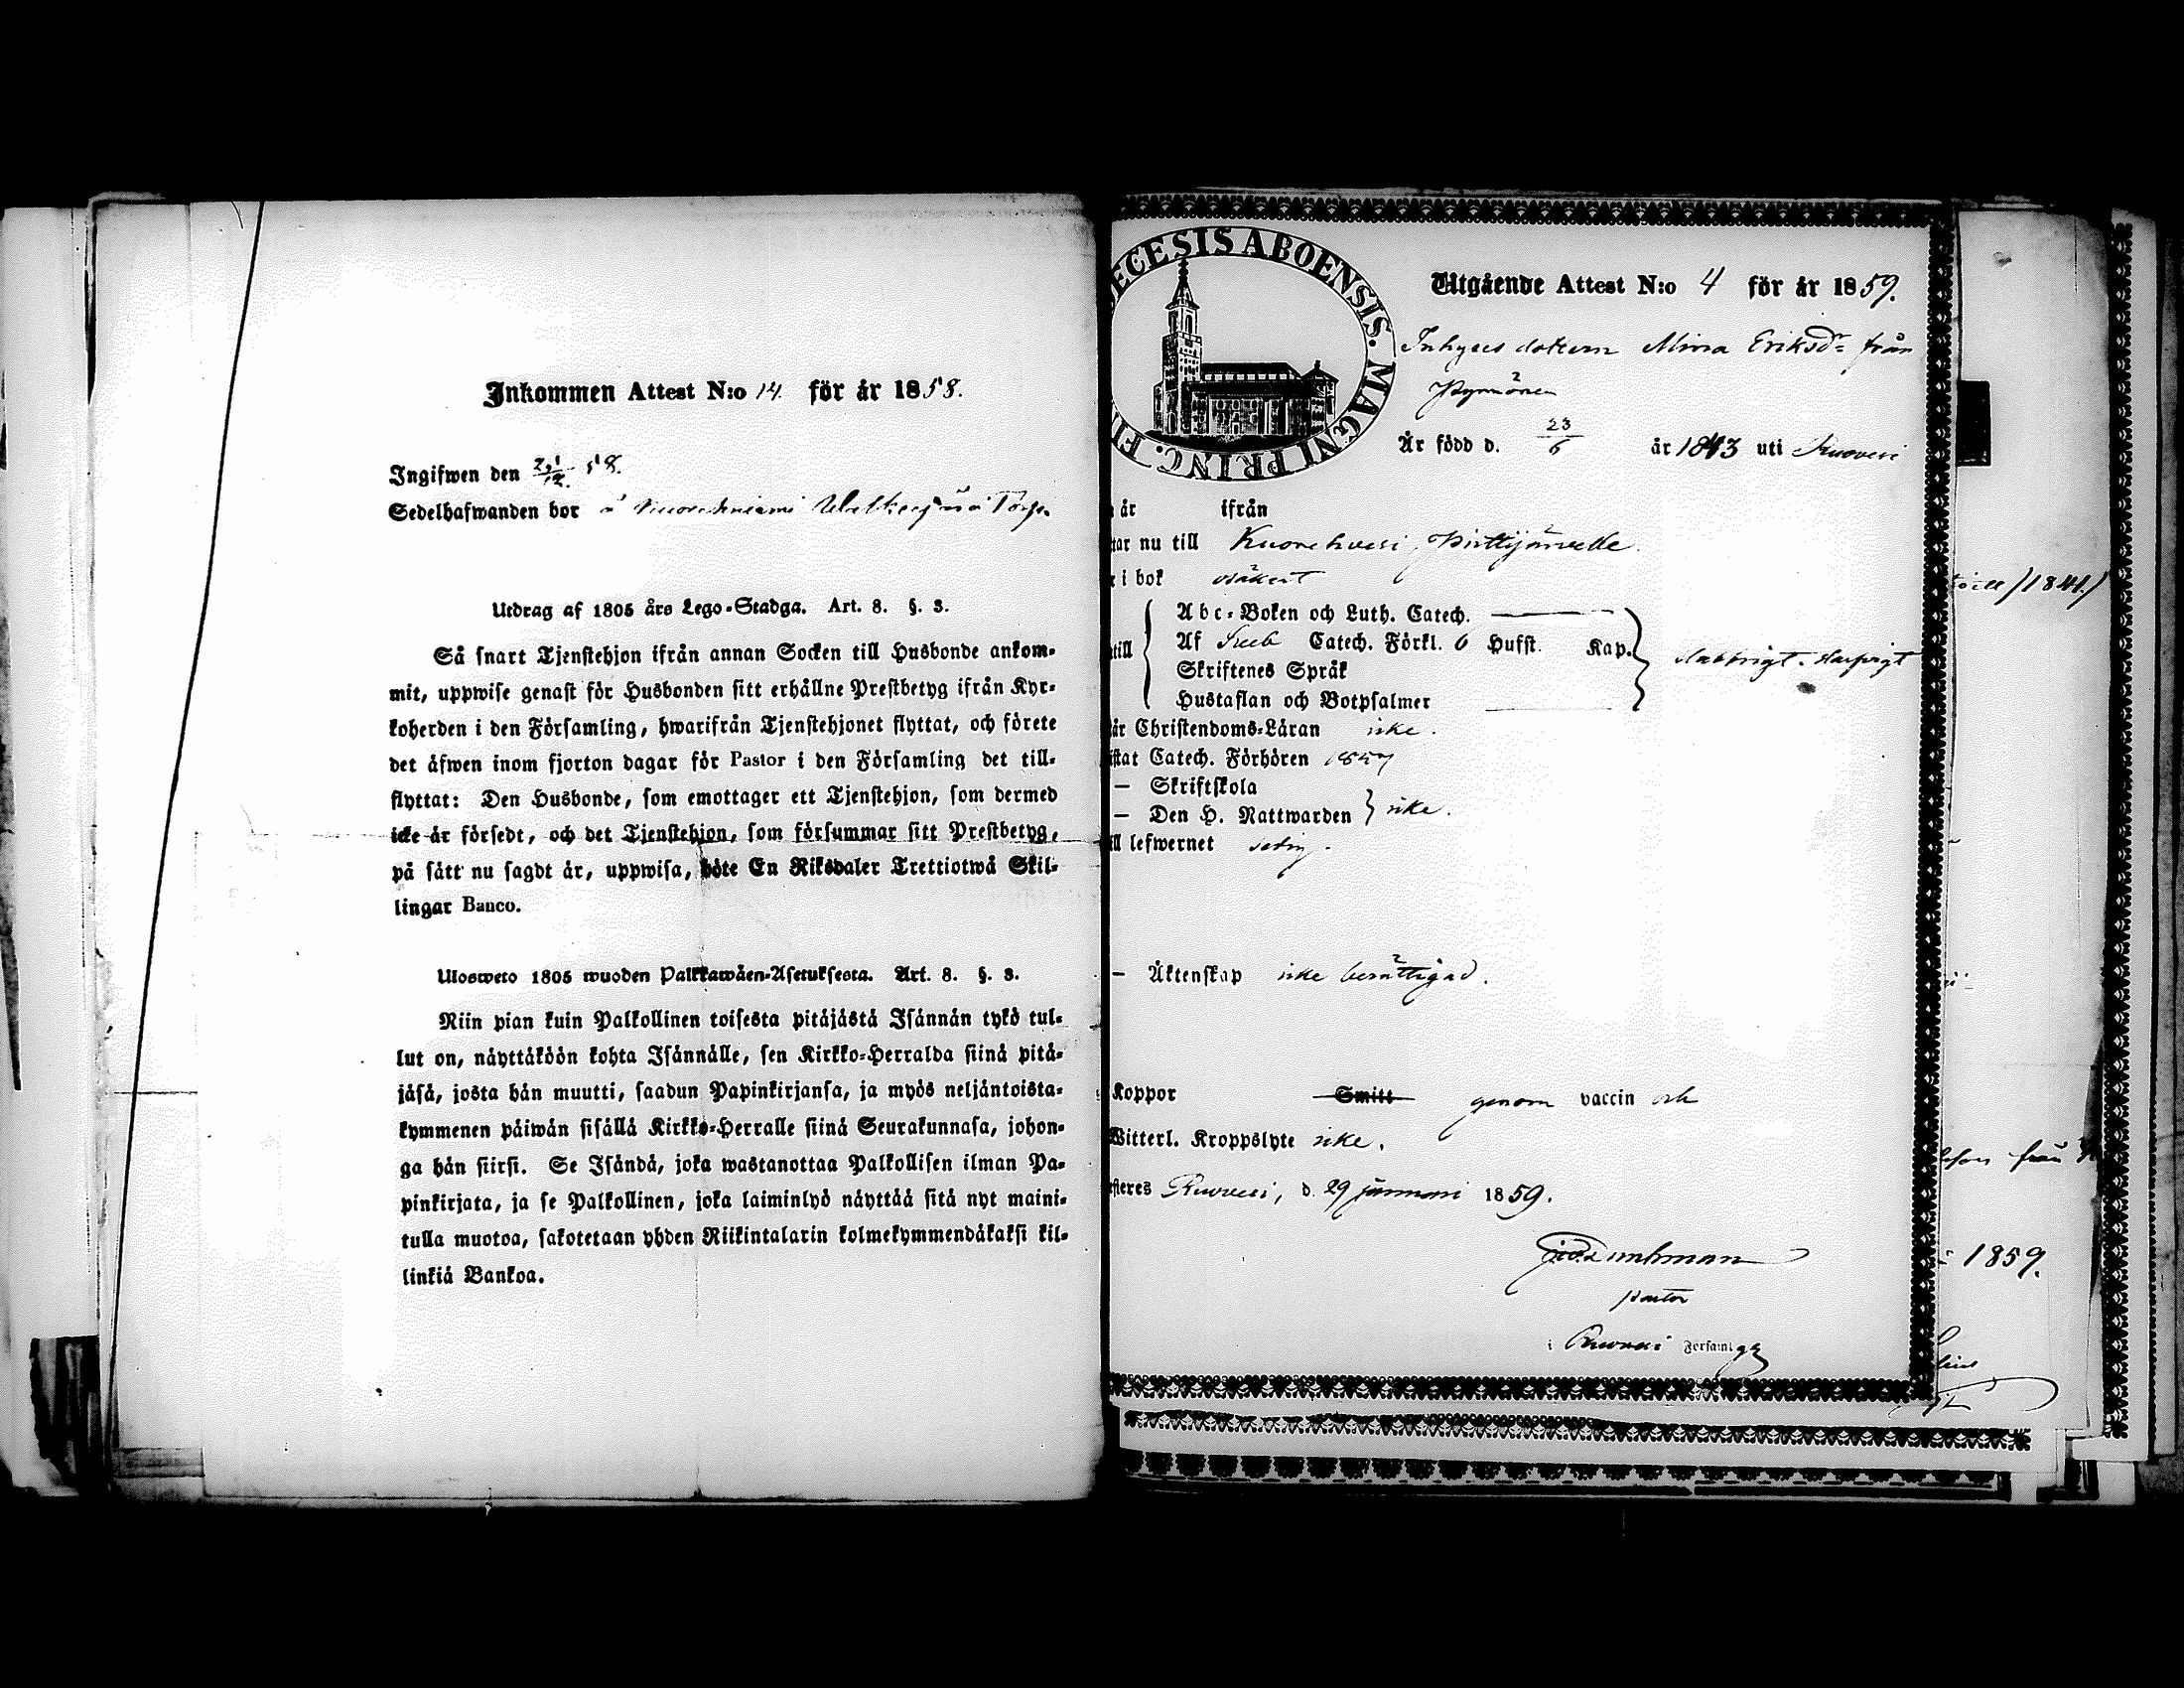 Inkommen Attest N:o 14. för år 1858.
Ingifwen den 21/12. 58.
Sedelhafwanden bor å
Utdrag af 1805 års Lego-Stadga. Art. 8. §. 3.
Så snart Tjenstehjon ifrån annan Socken till Husbonde ankom-
mit, uppwise genast för Husbonden sitt erhållne Prestbetyg ifrån Kyr-
koherden i den Församling, hwarifrån Tjenstehjonet flyttat, och förete
det äfwen inom fjorton dagar för Pastor i den Församling det till-
flyttat: Den Husbonde, som emottager ett Tjenstehjon, som dermed
icke är försedt, och det Tjenstehjon, som försummar sitt Prestbetyg,
på sätt nu sagdt är, uppwisa, böte En Riksdaler Trettiotwå Skil-
lingar Banco.
Ulosweto 1805 wuoden Palkkawäen-Asetuksesta. Art. 8. §. 3.
Niin pian kuin Palkollinen toisesta pitäjästä Isännän tykö tul-
lut on, näyttäköön kohta Isännälle, sen Kirkko-Herralda siinä pitä-
jäsä, josta hän muutti, saadun Papinkirjansa, ja myös neljäntoista-
kymmenen päiwän sisällä Kirkko-Herralle siinä Seurakunnasa, johon-
ga hän siirsi. Se Isändä, joka wastanottaa Palkollisen ilman Pa-
pinkirjata, ja se Palkollinen, joka laiminlyö näyttää sitä nyt maini-
tulla muotoa, sakotetaan yhden Riikintalarin kolmekymmendäkaksi kil-
linkiä Bankoa.
ECESIS ABOENSIS. MAGNI PRINC. FI
Utgående Attest N:o 4 för år 1859.
Inhyses dottern Mina Eriksdr från
Är född d. 23/6 år 1843 uti Ruovesi
år ifrån
tar nu till Kuorehvesi, Pirttijärvelle.
i bok osäkert
till
Abc-Boken och Luth. Catech.
Af Sveb Catech. Förkl. 6 Hufst. Kap.
Skriftenes Språk
Hustaflan och Botpsalmer
är Christendoms-Läran icke.
istat Catech. Förhören 1857
— Skriftskola
— Den H. Nattwarden icke.
ll lefwernet sedig.
— Äktenskap icke berättigad.
Koppor Smitt genom vaccin och
Witterl. Kroppslyte icke.
steres Ruovesi, d. 29 januari 1859.
pastor
i Ruovesi Församlg
1841
från
1859.